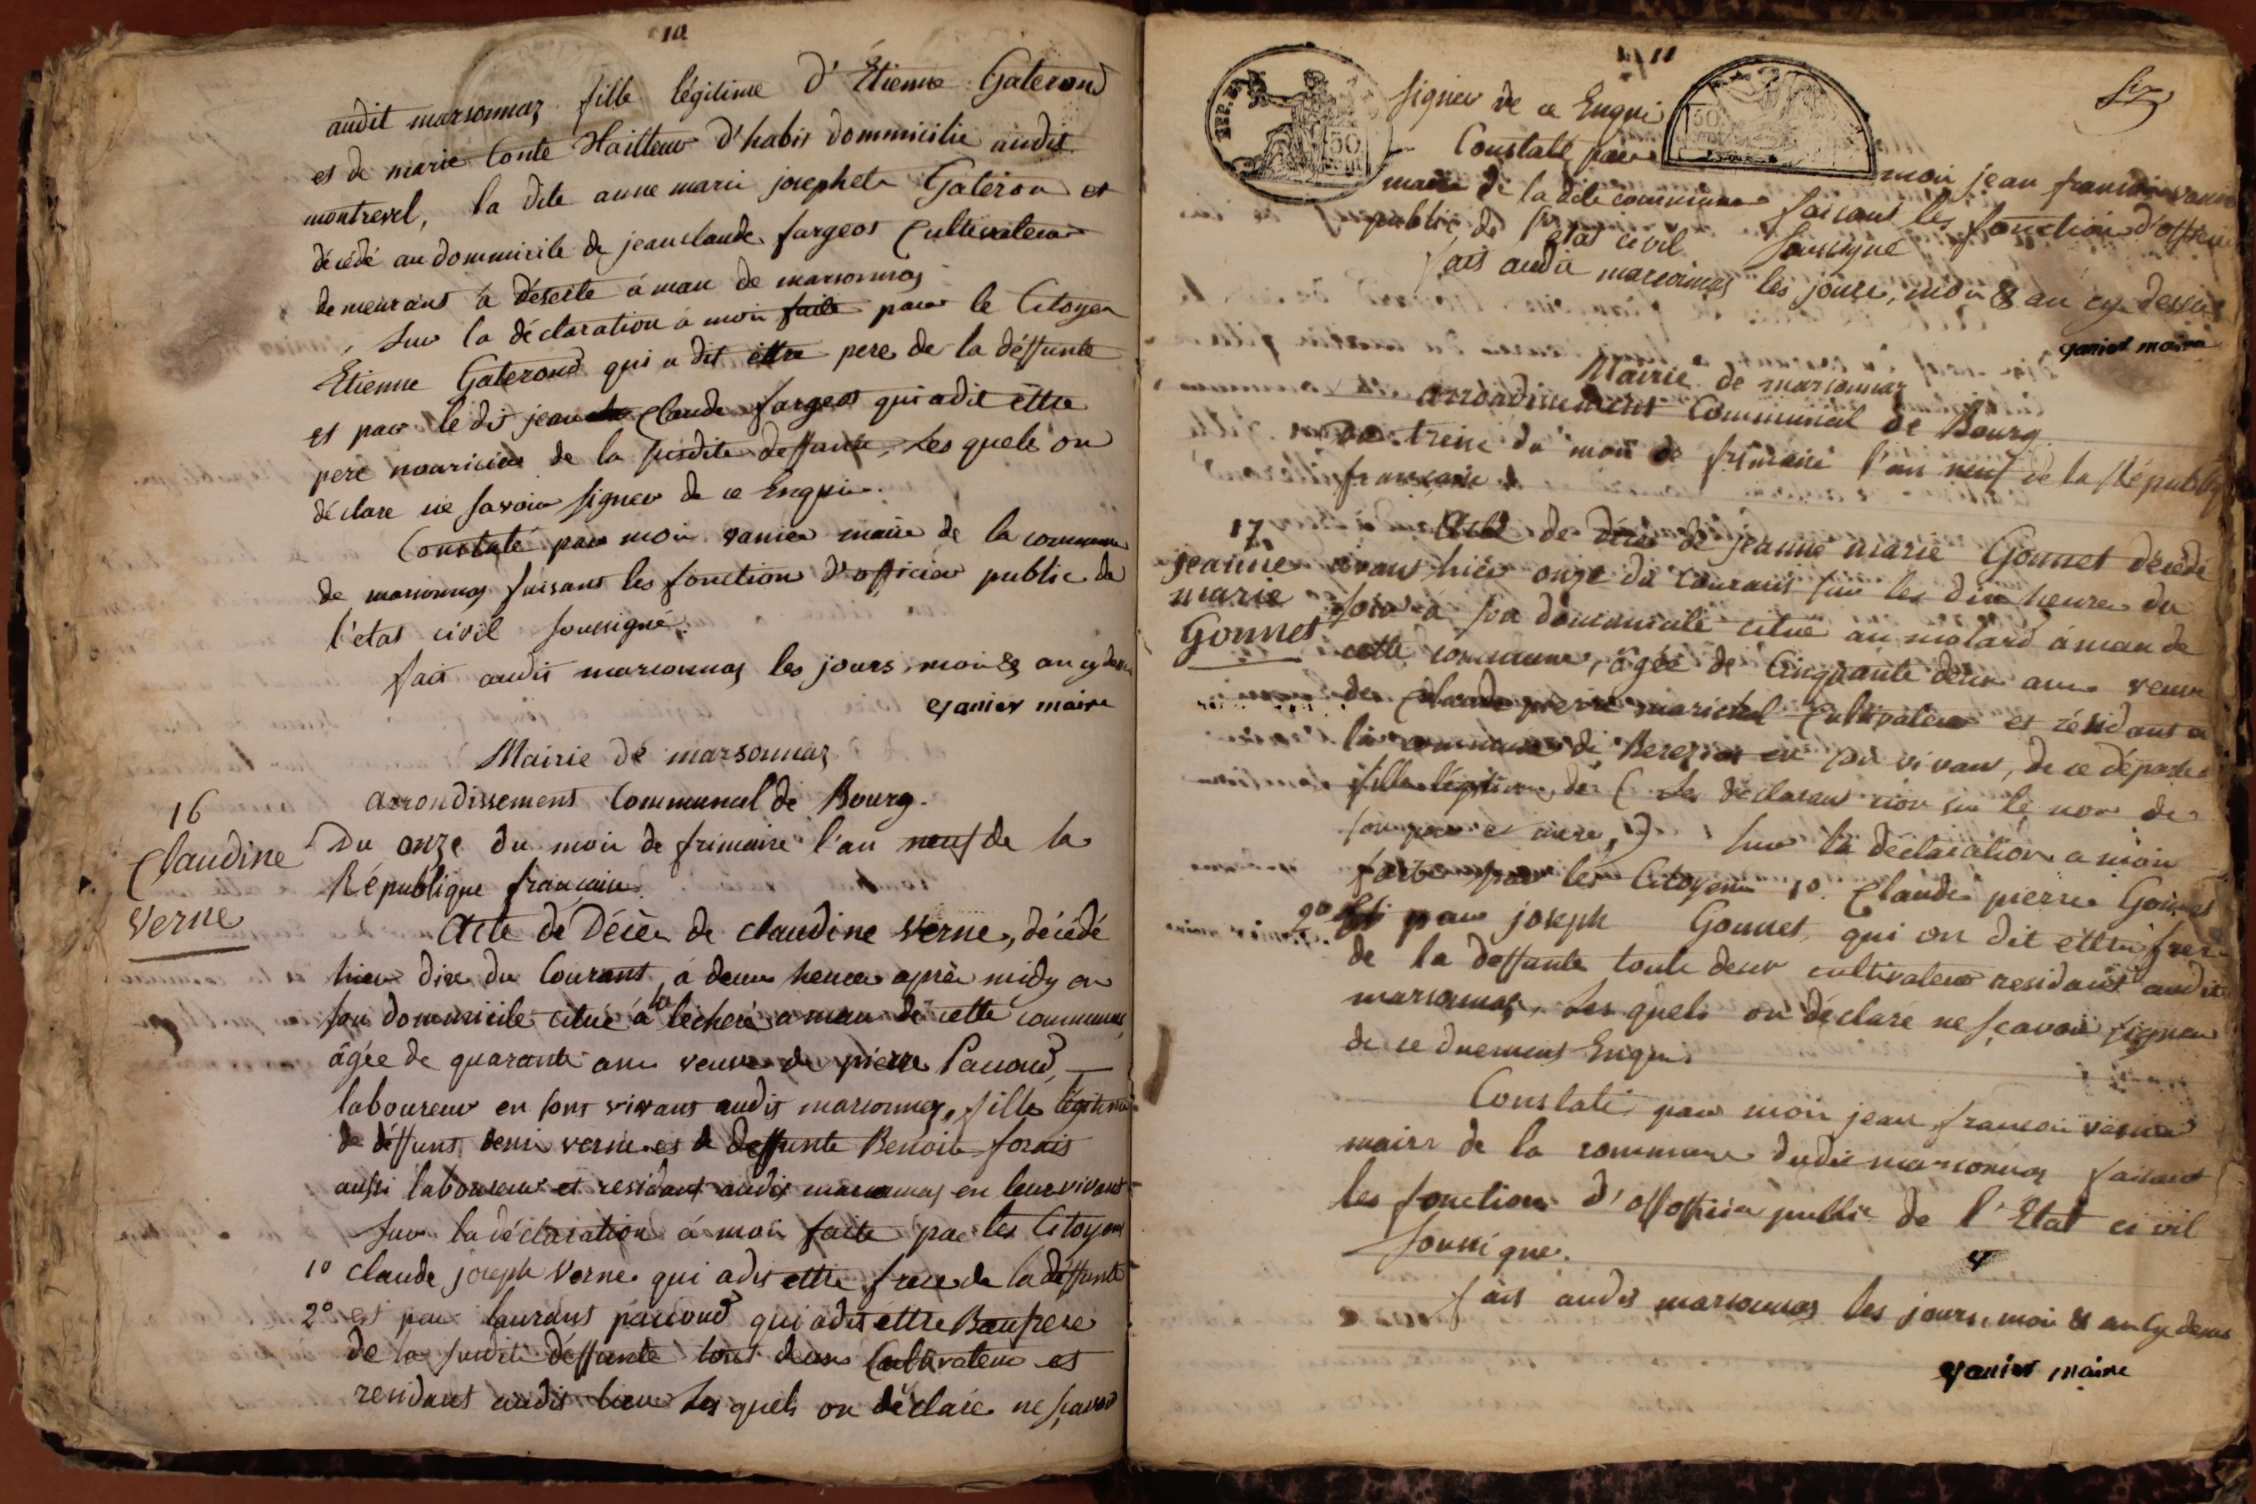 10
audit marsonnaz fille légitime d'Étienne Gaterond
et de marie Conte Hailleur d'habis dommicilié audit
montrevel, la dite anne marie josephete Gateron et
décédé au dommicile de jeanclaude fargeot Cultivateur
demeurant à déserte áman de marsonnas
Sur la déclaration a moi faite par le Citoyen
Etienne Gaterond qui a dit ettre pere de la déffunte
et par le dit jean Claude fargeot qui adit ettre
pere nouricier de la susdite deffunte, Les quels on
déclare ne savoir signer de ce Enquis
Constaté par moi vanier maire de la commune
de marsonnas faisant les fonction d'officier public de
l'etat civil soussigné.
fait audit marsonnas les jours, mois & an cy dessus
vanier maire
Mairie de marsonnaz
arrondissement Communal de Bourg.
16
Claudine
Verne
Du onze du mois de frimaire l'an neuf de la
République française
Acte de Décès de claudine Verne, décédé
hier dix du Courant, á deux heures après midy en
son dommicile citué á la lécheré a man de cette commune
âgée de quarante ans veuve de pierre Pauoud,
laboureur en sont vivant audit marsonnaz, fille légitime
de déffunt deni verne et de deffunte Benoite forais
aussi laboureur et residant audit marsonnas en leur vivant
Sur la déclaration á moi faite par les Citoyens
1º claude joseph Verne qui adit ettre frere de la déffunte
2º et par laurant pauoud qui adit ettre Baufrere
de la susdite déffunte tous deux Cultivateur et
residant audit lieu Les quels on déclaré ne sçavoir
11
signer de ce Enqui
Constaté par moi jean francois vanier
maire de la dite commune faisant les fonction d'officier
public de l'etat civil soussigné
fait audit marsonnas les jours, mois & an cy dessus
vanier maire
Mairie de marsonnaz
arrondissement Communal de Bourg
Du treize du mois de frimaire l'an neuf de la République
française
17
jeanne
marie
Gonnet
Acte de Décès de jeanne marie Gonnet décédé
avant hier onze du Courant sur les dix heures du
soir á son dommicile citué au molard áman de
cette commune, âgée de Cinquante deux ans veuve
de Claude pierre marichal Cultivateur et résidant a
la commune de Bereziat en son vivant, de ce département
fille légitime de (Les déclarant non su le non de
son pere et mere,) Sur la déclaration a moi
faite par les Citoyens 1º Claude pierre Gonnet
2º Et par joseph Gonnet, qui on dit ettre frere
de la deffunte touts deux cultivateur residant audit
marsonnas, Les quels on déclaré ne sçavoir signer
de ce duement Enquis
Constaté par moi jean francois vanier
maire de la commune dudit marsonnas faisant
les fonction d'offofficier public de l'Etat civil
soussigné.
fait audit marsonnas les jours, mois & an Cy dessus
vanier maire